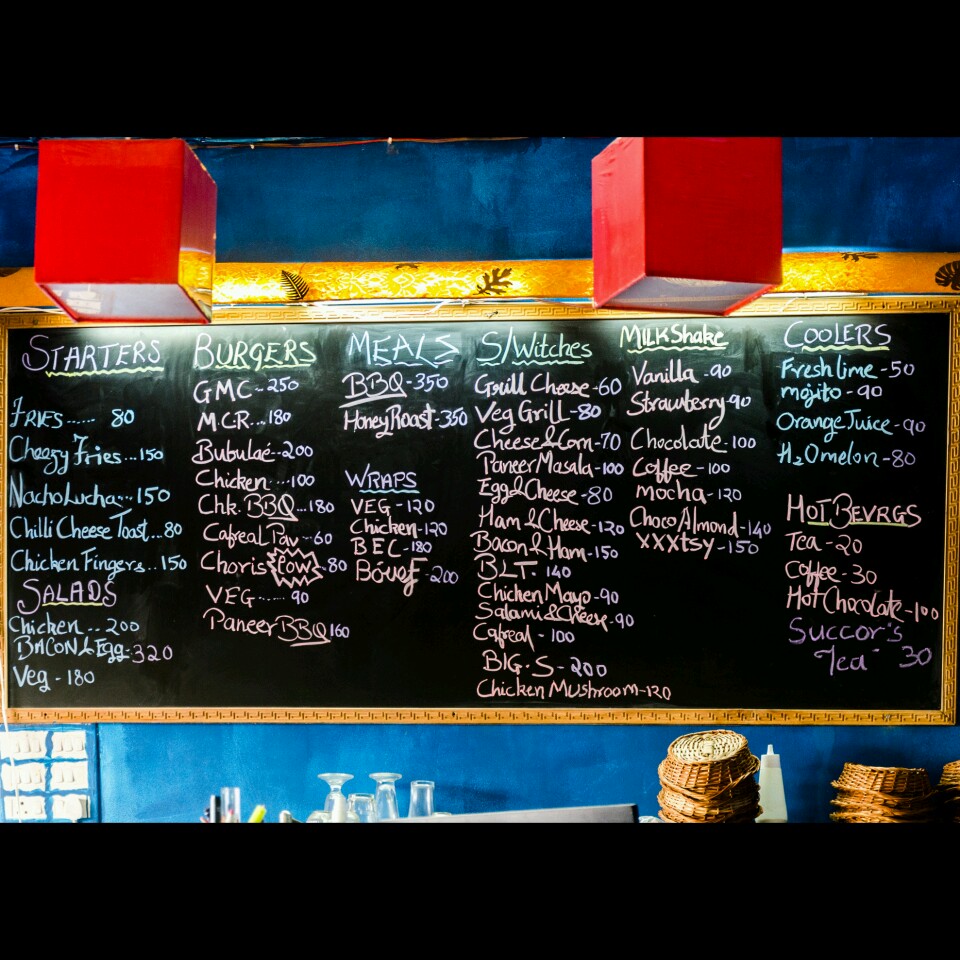 STARTERS
FRIES...... 80
Cheezy Fries...150
Nacho Lucha...150
Chilli Cheese Toast...80
Chicken Fingers..150
SALADS
Chicken...200
BACON & Egg-320
Veg-180
BURGERS
GMC...250
M.C.R...180
Bubulae..200
Chicken....100
Chk. BBQ...180
Cafreal Pav..60
Choris POW..80
VEG...... 90
Paneer BBQ 160
MEALS
BBQ-350
Honey Roast-350
WRAPS
VEG-120
Chicken-120
BEC-180
Bóuef-200
S/Witches
Grill Cheese-60
Veg Grill-80
Cheese & Corn-70
Paneer Masala-100
Egg & Cheese-80
Ham & Cheese-120
Bacon & Ham-150
BLT. 140
Chicken Mayo-90
Salami & Cheese-90
Cafreal-100
BIG.S-200
Chicken Mushroom-120
MILKShake
Vanilla-90
Strawberry-90
Chocolate-100
Coffee-100
mocha-120
Choco Almond-140
XXXtsy-150
COOLERS
Fresh lime-50
mojito-90
Orange Juice-90
H2Omelon-80
HOT BEVRGS
Tea-20
Coffee-30
Hot Chocolate-100
Succor's
Tea- 30